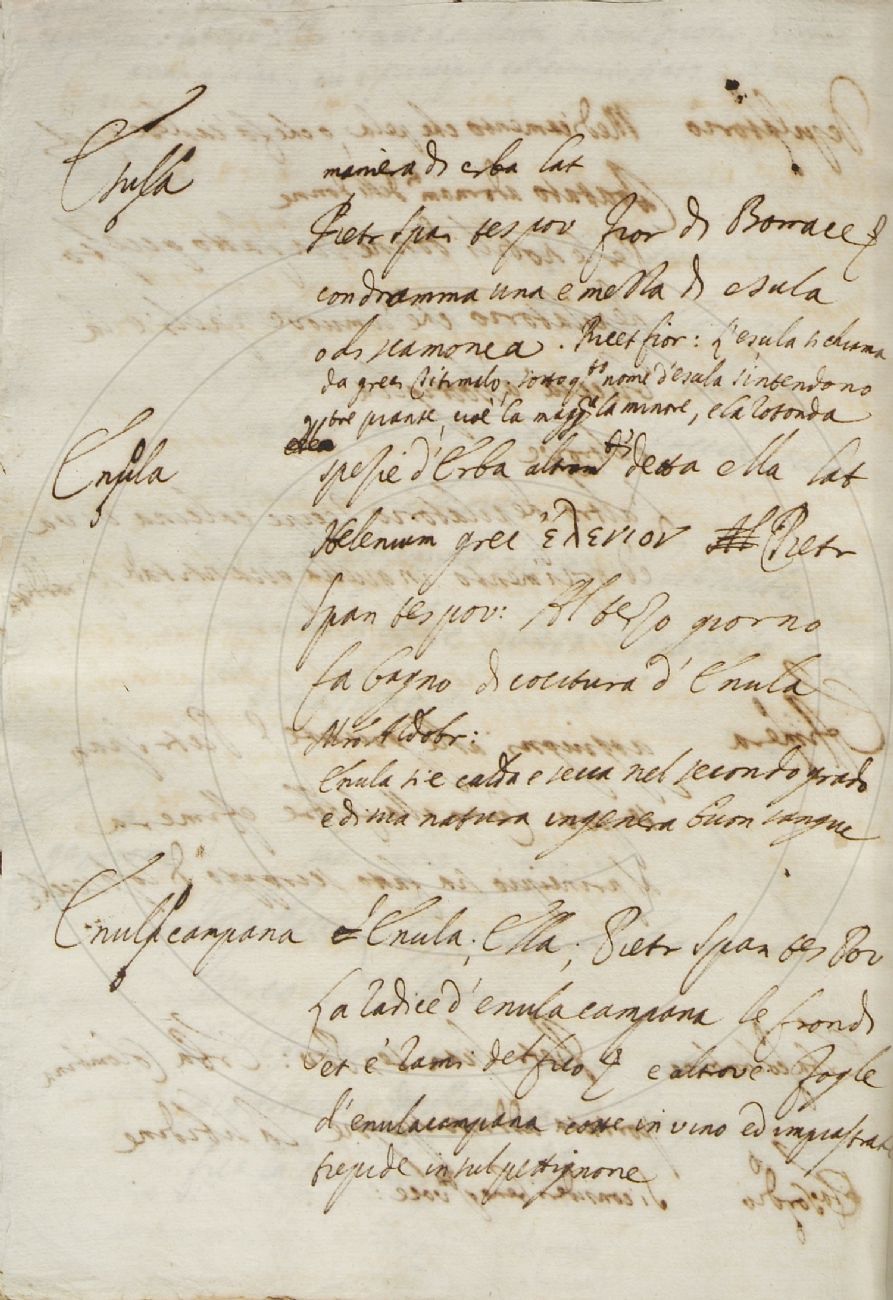 Esula
maniera di erba lat
Pietr Span tes pov Fior di Borrace
con dramma una e mezza di esula
o di scamonea. Ricet fior: L'esula si chiama
da greci Titimalo. sotto q.to nome d'esula s'intendono
tre piante, cioè la magg.re la minore, e la rotonda
Enula
spezie d'Erba altram.te detta ella lat
Helenium grec ἑλένιον Pietr
Span tes pov: Al terzo giorno
fa bagno di cocitura d'Enula
M.ro Aldobr:
Enula si è calda e secca nel secondo grado
e di sua natura ingenera buon sangue
Enula campana è Enula; Ella; Pietr Span tes Pov
La radice d'enula campana le frondi
et è rami del fico e altrove Fogle
d'enula campana cotte in vino ed impiastrate
tiepide in sul pettignone